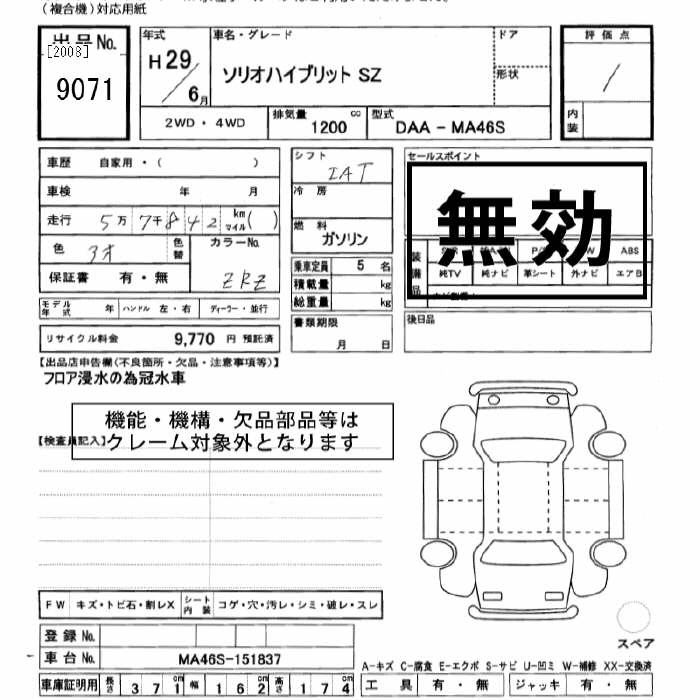 (複合機)対応用紙
出品No.
[2008]
9071
年式
H29/6月
車名・グレード
ソリオハイブリット SZ
ドア
形状
評価点
/
内装
2WD・4WD
排気量 1200 cc
型式 DAA-MA46S
車歴 自家用・( )
車検 年 月
走行 5万7千842 km マイル( )
色
色替
カラーNo.
ZRZ
保証書 有・無
モデル年式 年 ハンドル 左・右 ディーラー・並行
リサイクル料金 9,770 円 預託済
シフト
IAT
冷房
燃料
ガソリン
乗車定員 5 名
積載量 kg
総重量 kg
書類期限
月 日
セールスポイント
無効
装備品
ABS
純TV 純ナビ 革シート 外ナビ エアB
後日品
【出品店申告欄(不良箇所・欠品・注意事項等)】
フロア浸水の為冠水車
機能・機構・欠品部品等は
クレーム対象外となります
【検査員記入】
FW キズ・トビ石・割レX シート内装 コゲ・穴・汚レ・シミ・破レ・スレ
登録No.
車台No. MA46S-151837
車庫証明用 長さ 371 幅 162 高さ 174
スペア
A-キズ C-腐食 E-エクボ S-サビ U-凹ミ W-補修 XX-交換済
工具 有・無 ジャッキ 有・無